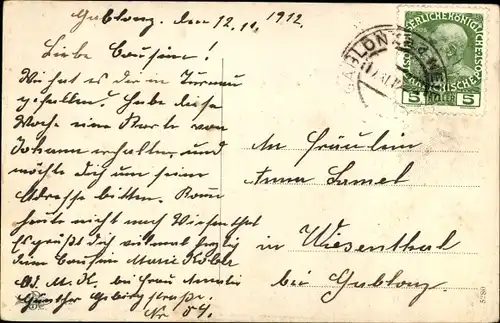 Gablonz, den 12.11. 1912.
Liebe Cousine!
Wie hat es dir in Turnau
gefallen? Habe diese
Woche eine Karte von
Johann erhalten, und
möchte dich um seine
Adresse bitten. Komme
heute nicht nach Wiesenthal
Es grüßt dich vielmals herzlich
deine Cousine Marie Köbler
Ad. M. K. bei Frau
Günther Gebirgstraße.
Nr 54.
An Fräulein
Anna Lamel
in Wiesenthal
bei Gablonz.
5 5
5280